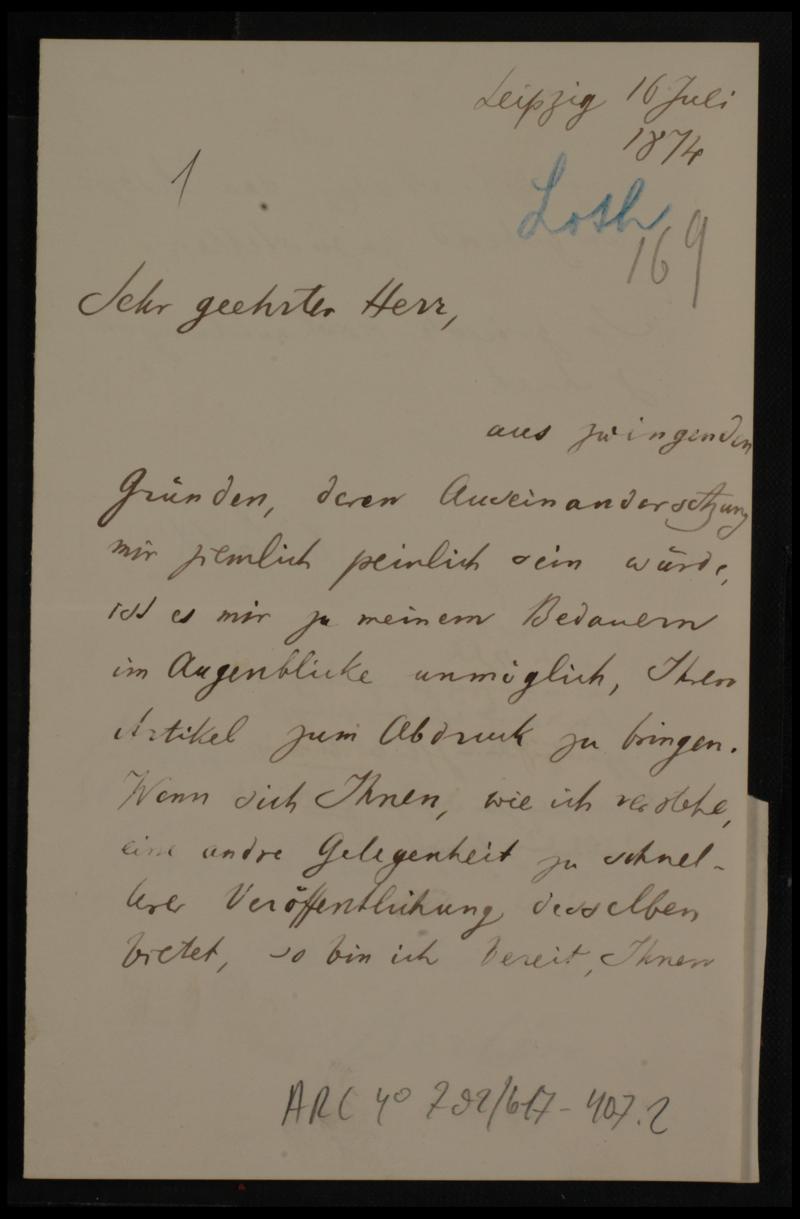 Leipzig 16 Juli
1874
1
Loth
169
Sehr geehrter Herr,
aus zwingenden
Gründen, deren Auseinandersetzung
mir ziemlich peinlich sein würde,
ist es mir zu meinem Bedauern
im Augenblicke unmöglich, Ihren
Artikel zum Abdruck zu bringen.
Wenn sich Ihnen, wie ich verstehe,
eine andre Gelegenheit zu schnel-
lerer Veröffentlichung desselben
bietet, so bin ich bereit, Ihnen
ARC 4° 792/617-407.2